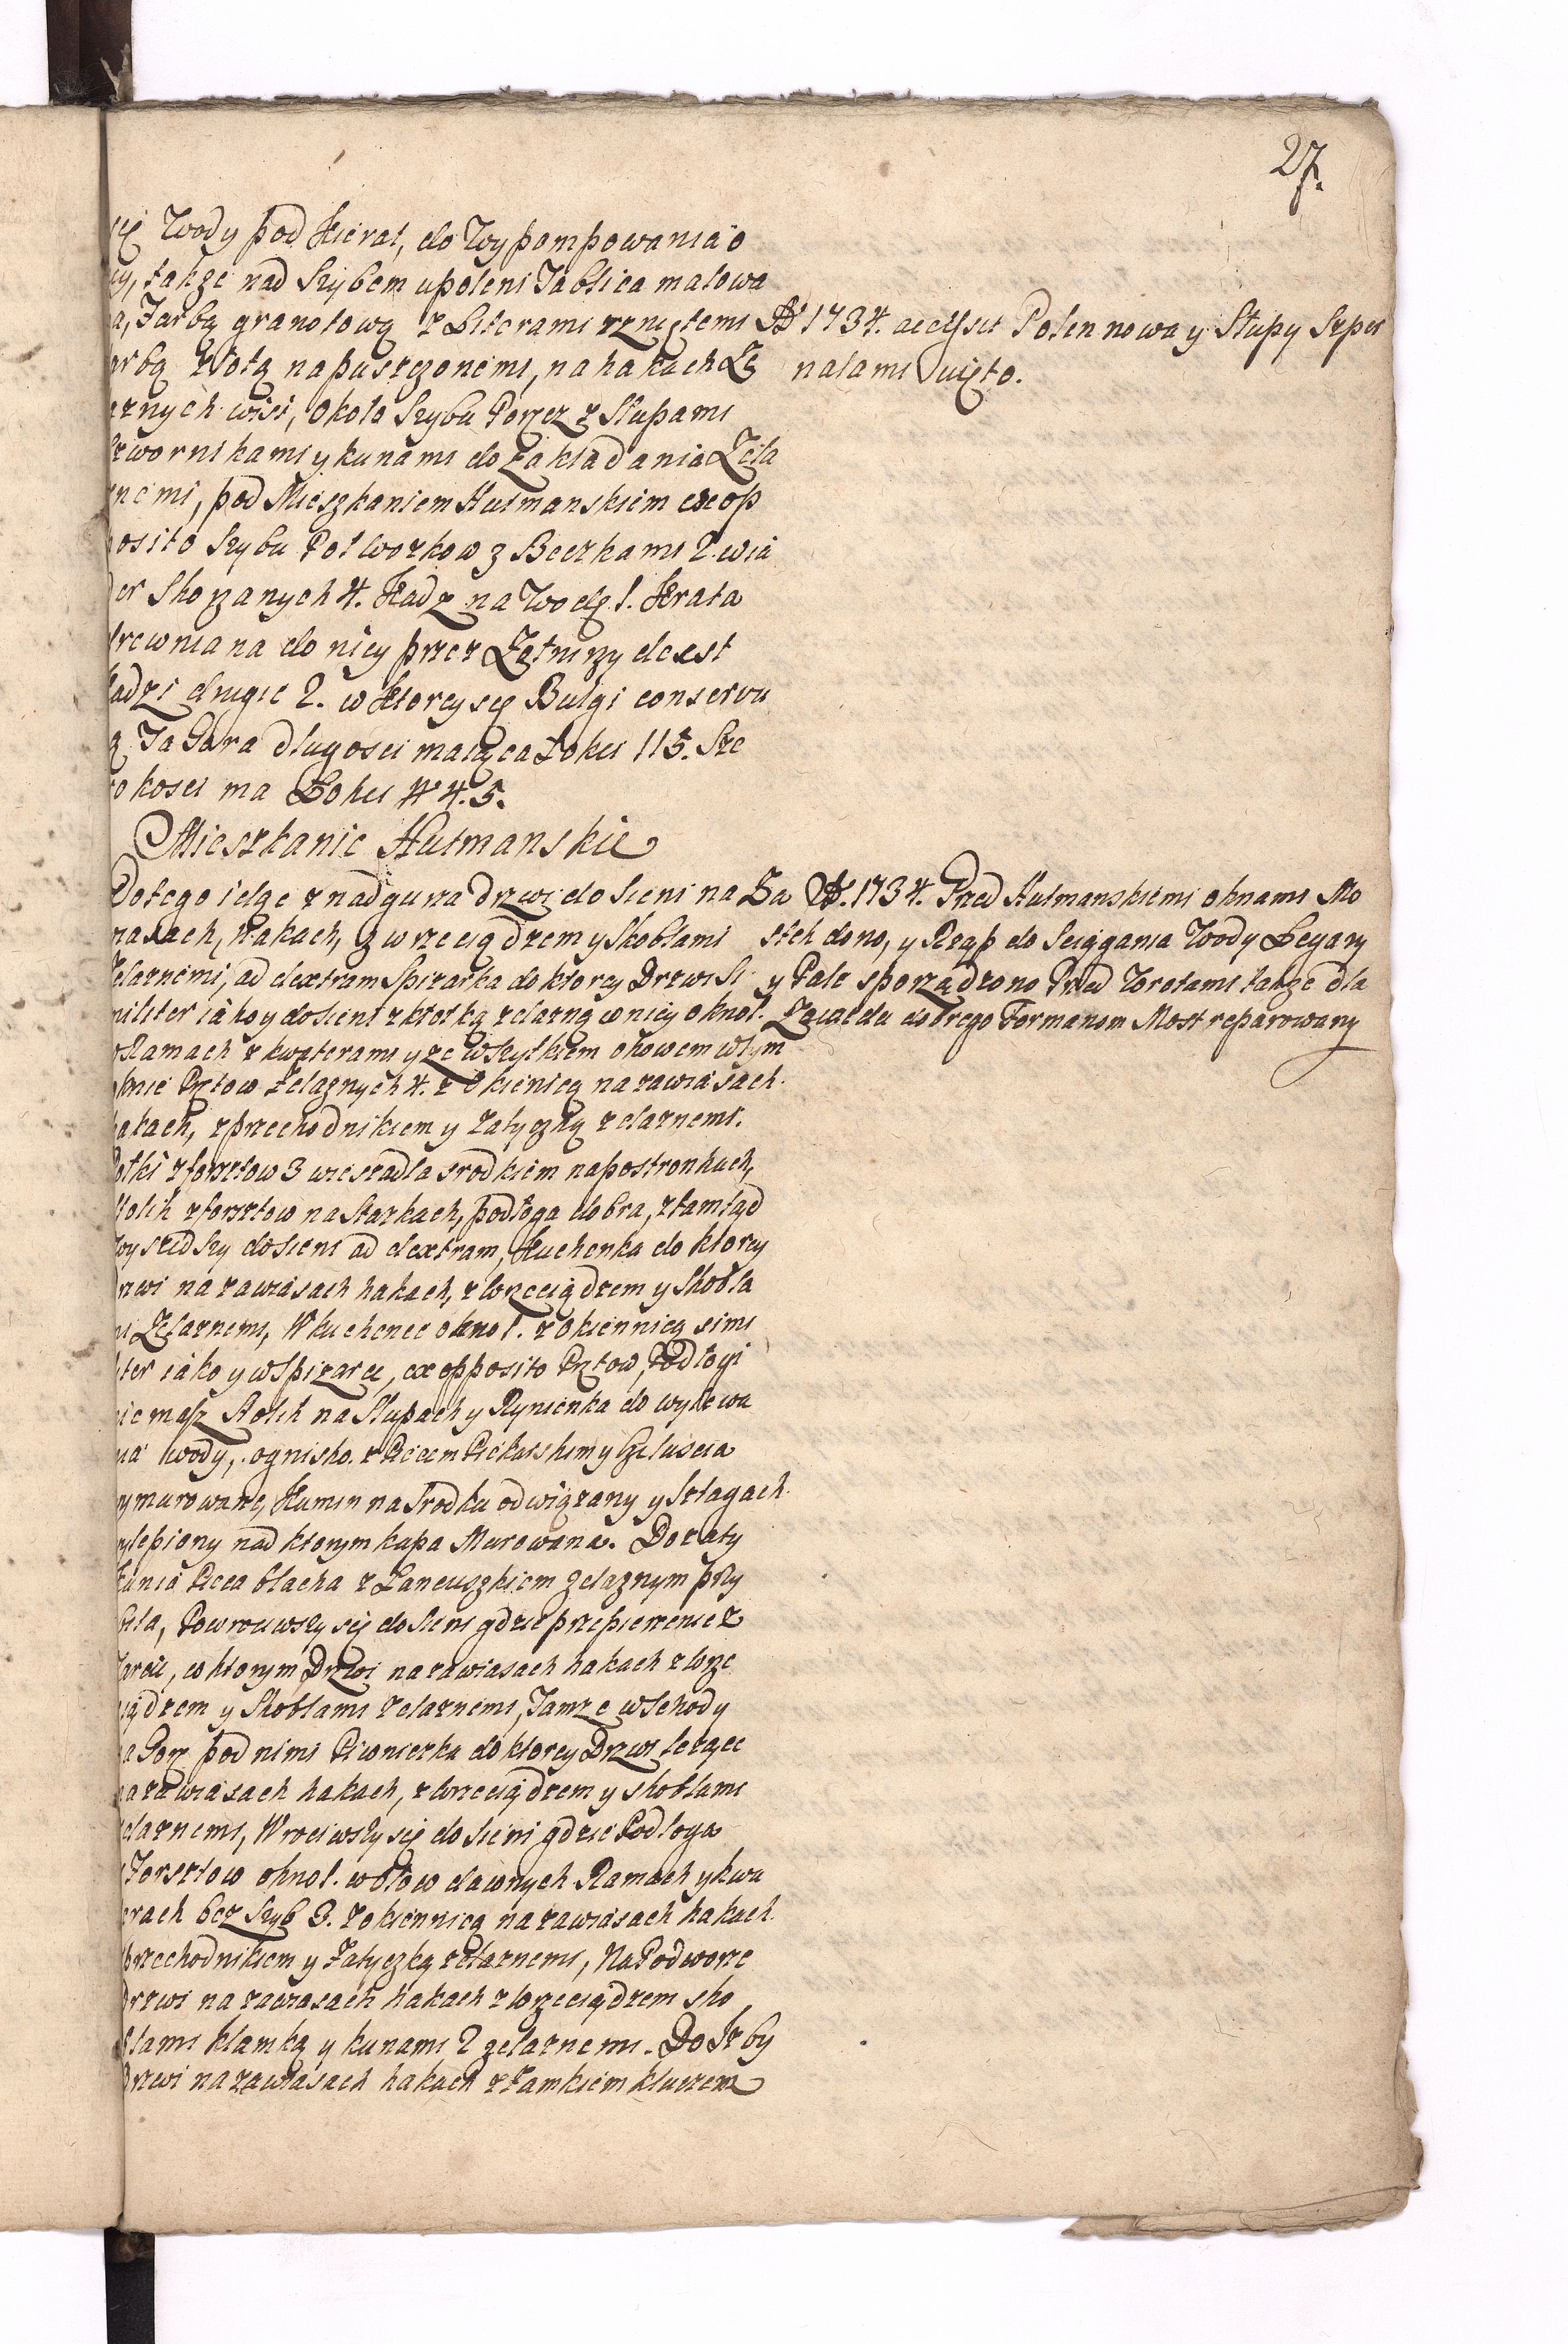 27.
się Wody pod Kierat, do Wypompowania o
ny, także nad Szybem upoleni Tablica malowa
na, Farbą granotową z Literami rzniętemi
arbą złotą napuszczonemi, na hakach Że
aznych wisi, Około Szybu Poręcz z Słupami
zwornikami y kunami do zakładania Żela
znemi, pod Mieszkaniem Hutmanskiem ex op
posito Szybu Pol Workow z Beczkami 2. wia
der Skorzanych 4. Kadz na Wodę 1. Krata
drewniana do niey przez Żętnizy de est
Kadzi drugie 2. w Ktorey się Bulgi conservu
ą Ta Gara długosci maiąca Łokci 115. Sze
rokosci ma Łokci 44.5.
A° 1734. accessit Polen nowa y Słupy Szper
nalami uięto.
Mieszkanie Hutmanskie
Do tego idąc z nadgurza Drzwi do Sieni na Za
wiasach, Hakach, z wrzeciądzem y Skoblami
Żelaznemi, ad dextram Spizarka do ktorey Drzwi Si
militer iako y do sieni z kłotką zelazną w niey okno 1.
w Ramach z kwaterami y ze wszytkiem okowem w tym
oknie Prętow Żelaznych 4. z Okienicą na zawiasach
hakach, z przechodnikiem y zatyczką zelaznemi.
Połki z forsztow 3 wieszadla srodkiem na postronkach,
Stolik z forsztow na Starkach, podłoga dobra, z tamtąd
wyszedszy do sieni ad dextram, Kuchenka do ktorey
Drzwi na zawiasach hakach, z wrzeciądzem y Skobla
mi Żelaznemi, W kuchence okno 1. z Okiennicą simi
liter iako y w Spizarce, ex opposito Prętow, Podłogi
nie masz Stolik na Słupach y Rynienka do wylewa
nia wody, ognisko z Piecem Piekarskim y Czeluscia
wymurowane, Kumin na Srodku odwiązany y Szlagach
wylepiony nad ktorym kapa Murowana. Do zaty
kania Pieca blacha z Łancuszkiem zelaznym przy
bita, Powrociwszy się do Sieni gdzie przepierzenie z
Tarcic, w ktorym Drzwi na zawiasach hakach z wrze
ciądzem y Skoblami zelaznemi, Tamze wschody
na Gorę pod nimi Piwniczka do ktorey Drzwi lezące
na zawiasach hakach, z wrzeciądzem y skoblami
zelaznemi, Wrociwszy się do Sieni gdzie Podłoga
z Forsztow okno 1. w ołow dawnych Ramach y kwa
terach bez Szyb 3. z okiennicą na zawiasach hakach
przechodnikiem y Zatyczką zelaznemi, Na Podworze
Drzwi na zawiasach hakach z wrzeciądzem sko
blami klamką y kunami 2 zelaznemi. Do Izby
Drzwi na zawiasach hakach z Zamkiem kluczem
A°. 1734. Przed Hutmanskiemi oknami Mo
stek dano, y Rząp do Sciągania Wody Legary
y Pale sporządzono Przed Wrotami takze dla
Zaiazdu dobrego Formanom Most reparowany